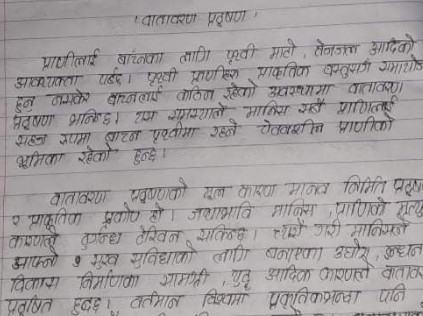 'वातावरण प्रदूषण'
प्राणीलाई बाँच्नका लागि पृथ्वी माटो, तेजजल आदिको
आवश्यकता पर्दछ। पृथ्वी प्राणीहरु प्राकृतिक वस्तुसँगै समायोज
हुन नसकेर बाँच्नलाई कठिन रहेको अवस्थामा वातावरण
प्रदूषण भनिन्छ। यस समस्याले मानिस सबै प्राणीलाई
सहज रुपमा बाँच्न पृथ्वीमा रहने चेतनशील प्राणीको
भूमिका रहेको हुन्छ।
वातावरण प्रदूषणको मूल कारण मानव निर्मित प्रदूष
र प्राकृतिक प्रकोप हो। मानिस, प्राणीको मृत्यु
कारणले दुर्गन्ध सकिन्छ। त्यसै गरी मानिसले
आफ्नो सुख सुविधाको लागि बनाएका उद्योग, इन्धन
विकास निर्माणका सामग्री, युद्ध आदिका कारणले वाताव
प्रदूषित हुन्छ। वर्तमान विश्वमा पनि